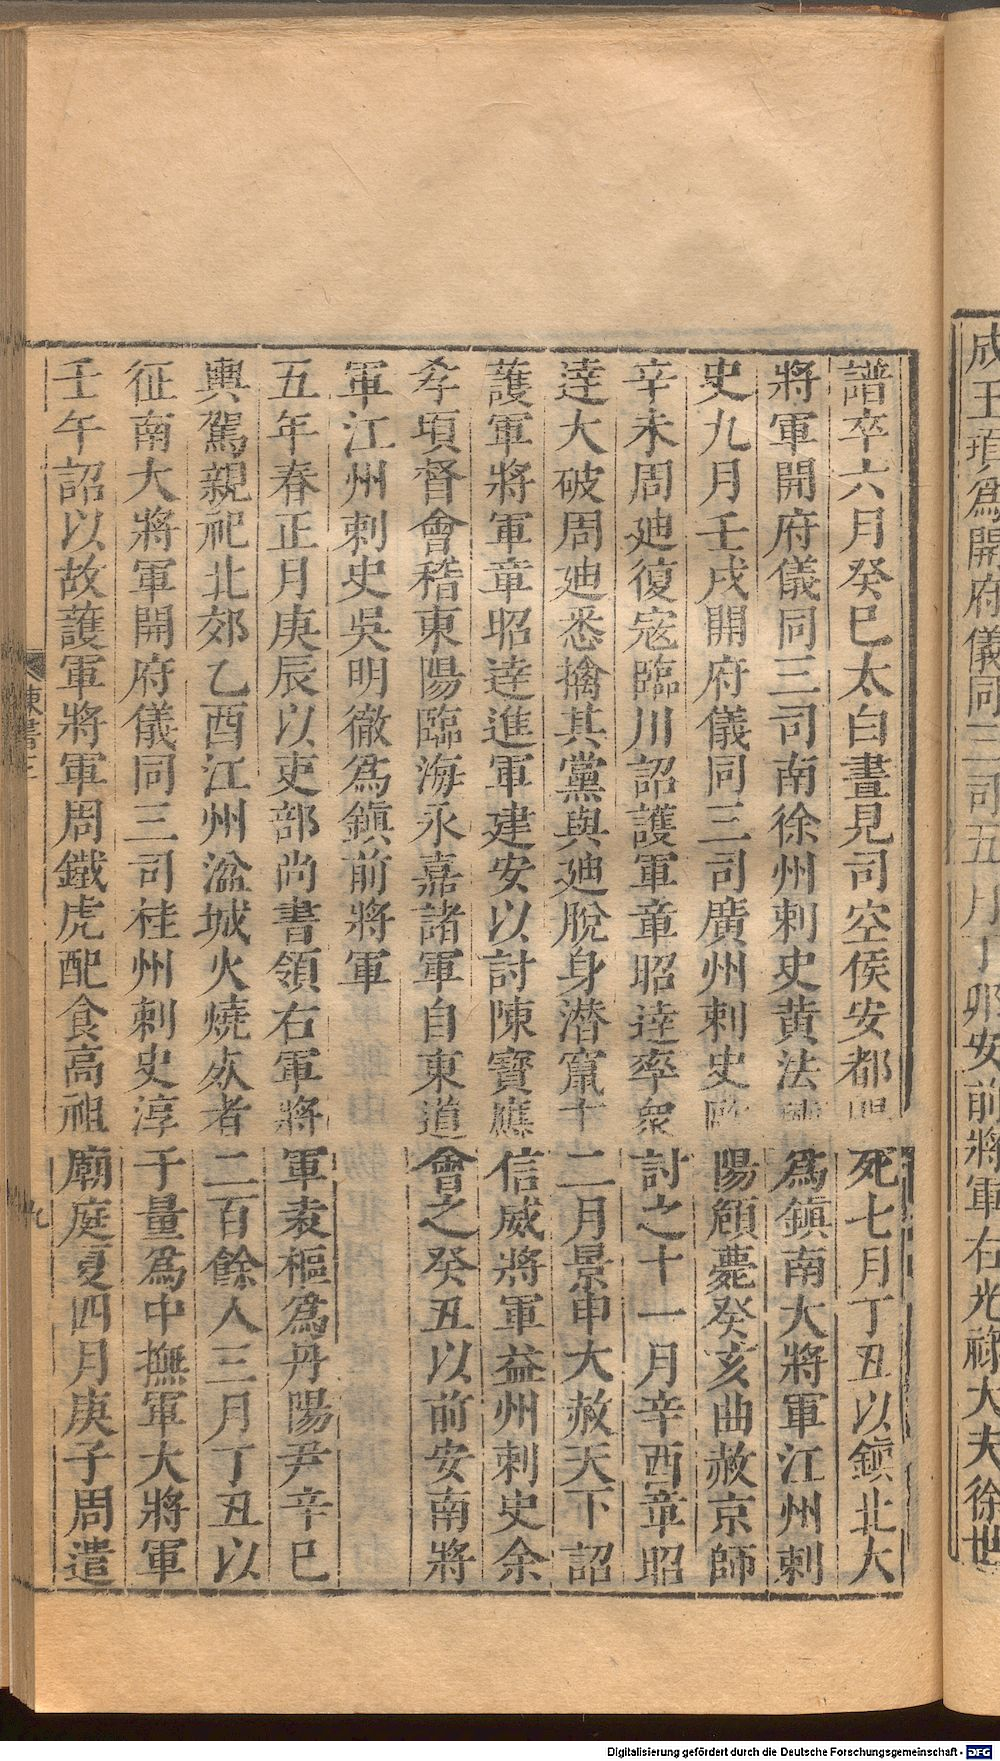 成王頊爲開府儀同三司五月丁卯安前將軍右光祿大夫徐世
譜卒六月癸巳太白晝見司空侯安都賜死七月丁丑以鎭北大
將軍開府儀同三司南徐州刺史黃法𣰰爲鎭南大將軍江州刺
史九月壬戌開府儀同三司廣州刺史歐陽頠薨癸亥曲赦京師
辛未周迪復寇臨川詔護軍章昭逹率衆討之十一月辛酉章昭
逹大破周迪悉擒其黨與迪脫身潛竄十二月景申大赦天下詔
護軍將軍章昭逹進軍建安以討陳寶應信威將軍益州刺史余
孝頃督會稽東陽臨海永嘉諸軍自東道會之癸丑以前安南將
軍江州刺史吳明徹爲鎭前將軍
五年春正月庚辰以吏部尚書領右軍將軍袁樞爲丹陽尹辛巳
輿駕親祀北郊乙酉江州湓城火燒死者二百餘人三月丁丑以
征南大將軍開府儀同三司桂州刺史淳于量爲中撫軍大將軍
壬午詔以故護軍將軍周鐵虎配食高祖廟庭夏四月庚子周遣
陳書三
九
Digitalisierung gefördert durch die Deutsche Forschungsgemeinschaft - DFG